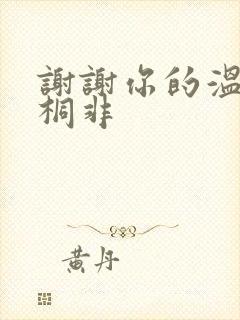 謝謝你的溫
桐非
黃丹